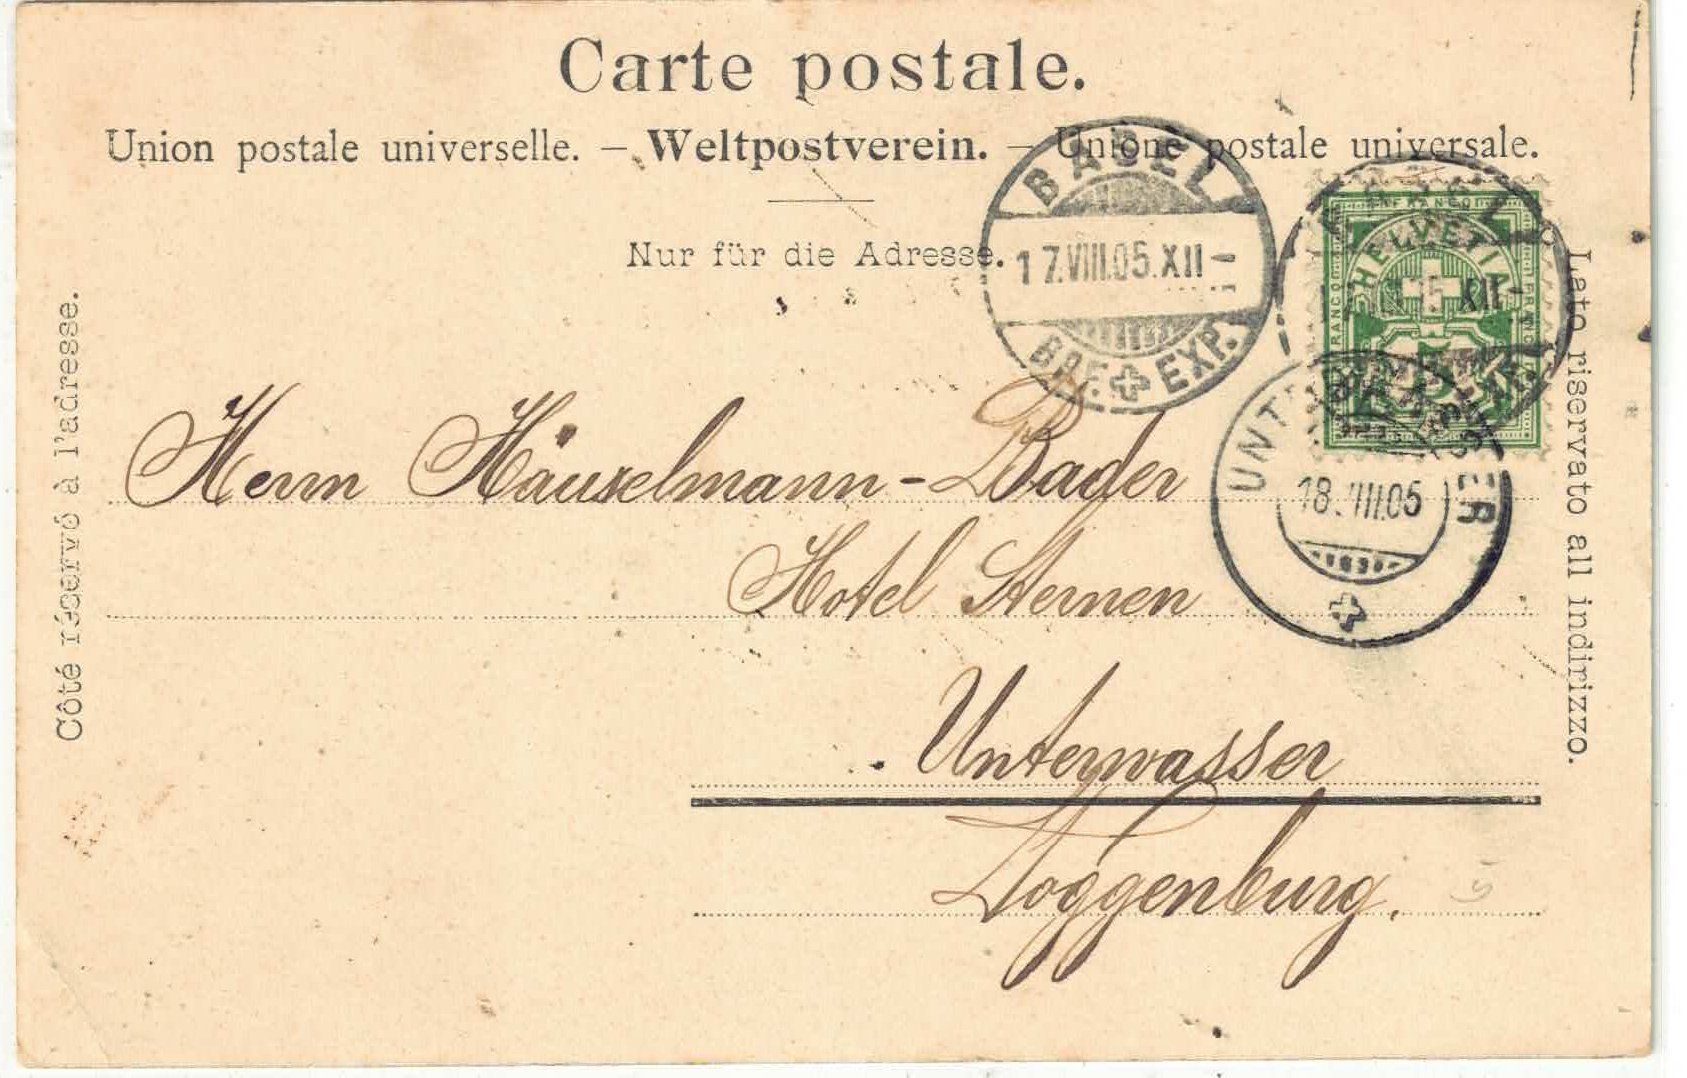 Carte postale.
Union postale universelle. – Weltpostverein. – Unione postale universale.
Nur für die Adresse.
Côté réservé à l'adresse.
Lato riservato all indirizzo.
BASEL
17.VIII.05.XII–
BRF. EXP.
FRANCO
HELVETIA
FRANCO
XII–
18.VIII.05
Herrn Häuselmann-Bader
Hotel Sternen
Unterwasser
Toggenburg.